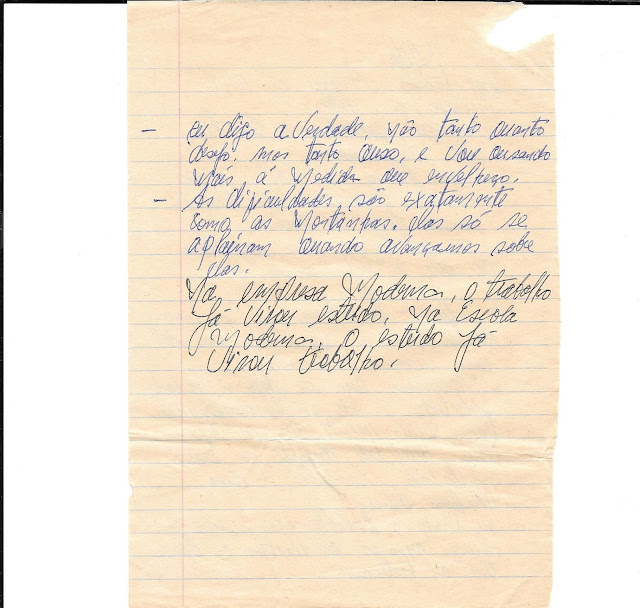 - Eu digo a verdade, não tanto quanto
desejo, mas tanto ouso, e vou ousando
mais á medida que envelheço.
- As dificuldades são exatamente
como as Montanhas. elas só se
aplainam quando avançamos sobre
elas.
Na empresa Moderna, o trabalho
Já virou estudo. Na Escola
Moderna, o estudo Já
Virou trabalho.